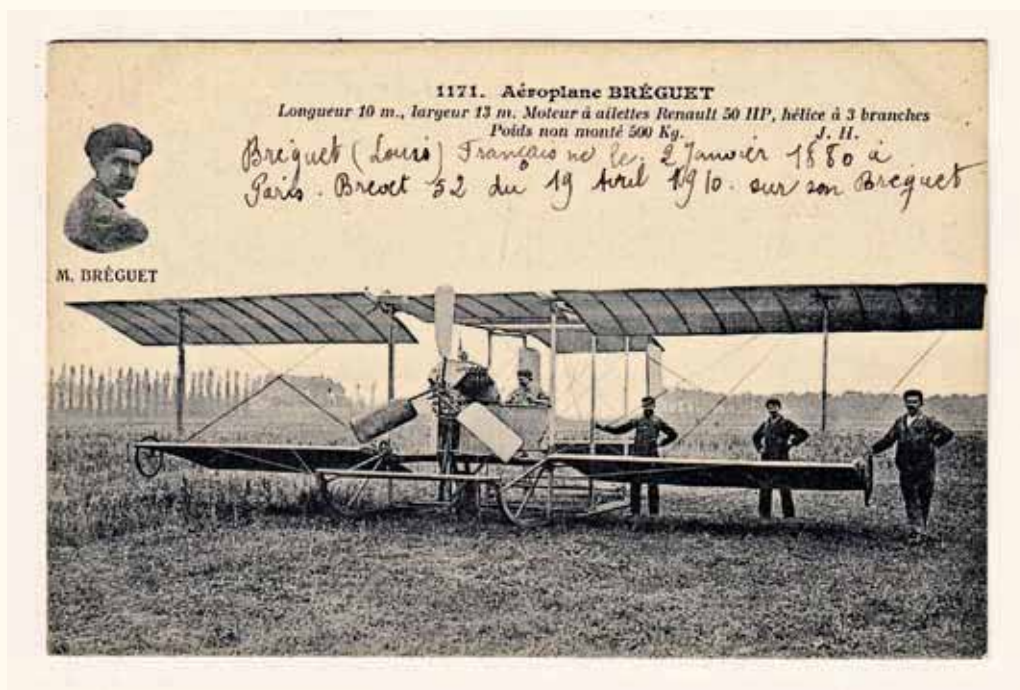 1171. Aéroplane BRÉGUET
Longueur 10 m., largeur 13 m. Moteur à ailettes Renault 50 HP, hélice à 3 branches
Poids non monté 500 Kg. J. H.
Breguet (Louis) Français né le 2 Janvier 1880 à
Paris. Brevet 52 du 19 Avril 1910. sur son Breguet
M. BRÉGUET